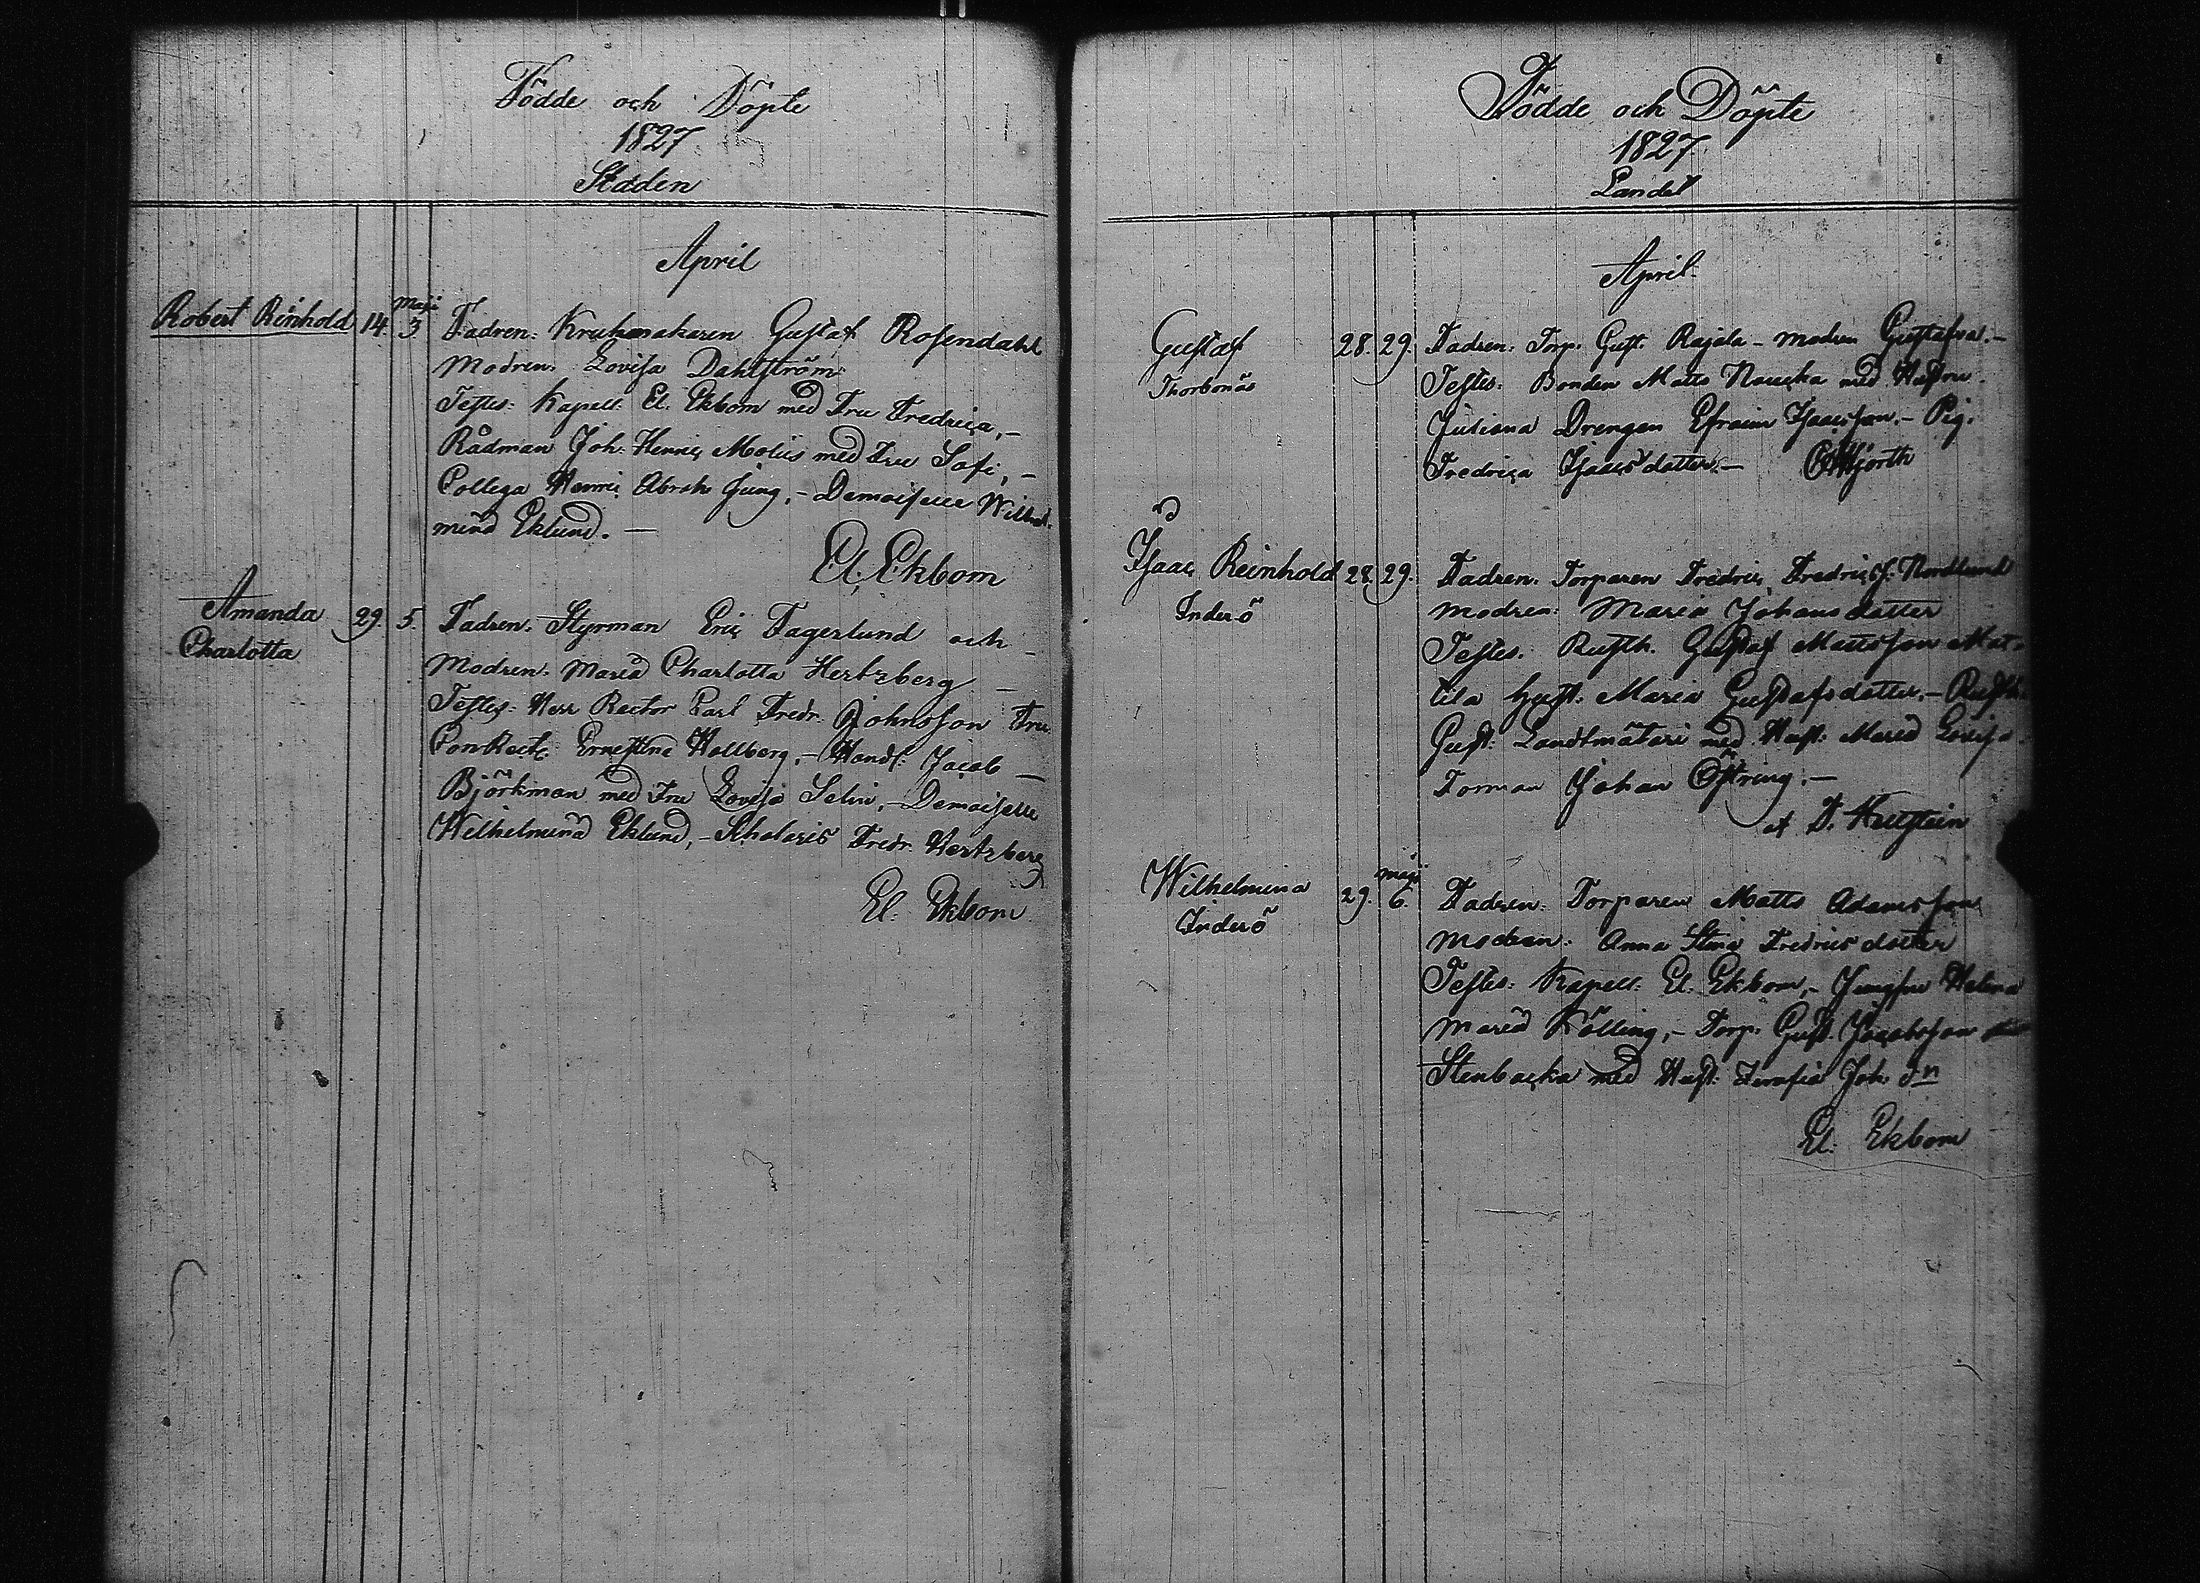 Födde och Döpte
1827
Staden
April
Robert Reinhold 14. Maji 3. Fadren: Krukmakaren Gustaf Rosendahl
Modren: Lovisa Dahlström
Testes: Kapell. El. Ekbom med Fru Fredrica, –
Rådman Joh. Henric Moliis med Fru Sofi, –
Collega Henric Abrah. Ljung, – Demoiselle Wilhel-
mina Eklund. –
El. Ekbom
Amanda 29. 5. Fadren. Styrman Eric Fagerlund och
Charlotta
Modren: Maria Charlotta Hertzberg –
Testes: Herr Rector Carl Fredr. Johnsson Fru
Con Rect: Ernestina Hallberg, – Handl: Jacob –
Björkman med Fru Lovisa Selin, – Demoiselle
Wilhelmina Eklund, – Skholaris Fredr. Hertzberg
El. Ekbom
Födde och Döpte
1827
Landet
April
Gustaf 28. 29. Fadren: Torp. Gust. Rajala – Modren Gustafva. –
Thorbonäs Testes: Bonden Matts Naucka med Hustru
Juliana Drengen Efraim Isaacsson. – Pig.
Fredrica Isaacsdotter. – Hjorth
Isaac Reinhold 28. 29. Fadren: Torparen Fredric Fredricss. Nordlund
Inderö Modren: Maria Johansdotter
Testes: Rusth. Gustaf Mattsson Mat-
tila Hust: Maria Gustafsdotter. – Rusth.
Gust: Landtmäteri med Hust: Maria Lovisa
Forman Johan Östring. –
af D.
Wilhelmina 29. Maji 6. Fadren: Torparen Matts Adamsson
Inderö Modren: Anna Stina Fredricsdotter
Testes: Kapell. El. Ekbom, – Jungfru Helena
Maria Kölling, – Torp. Gust. Jacobsson
Stenbacka med Hust: Joh. dr
El. Ekbom